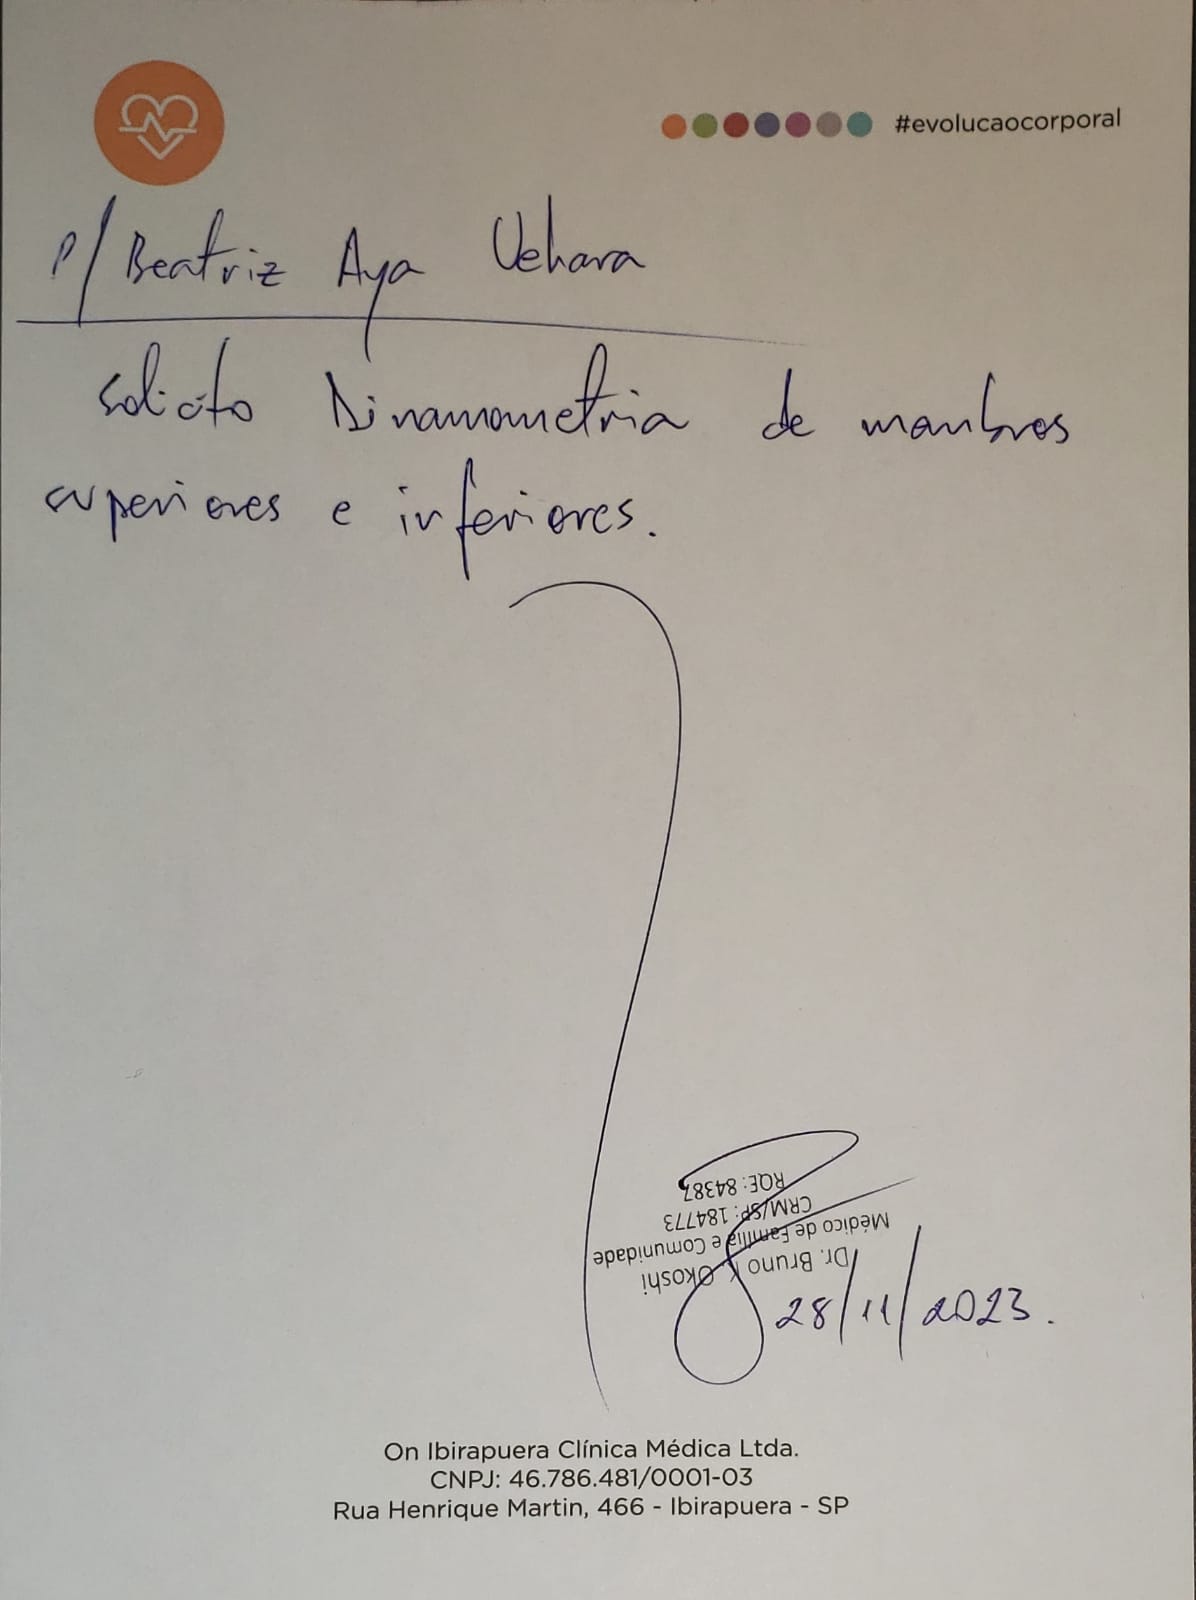 #evolucaocorporal
P/ Beatriz Aya Uehara
solicito Dinamometria de membros
superiores e inferiores.
Dr. Bruno K Okoshi
Médico de Família e Comunidade
CRM/SP: 184773
RQE: 84387
28/11/2023.
On Ibirapuera Clínica Médica Ltda.
CNPJ: 46.786.481/0001-03
Rua Henrique Martin, 466 - Ibirapuera - SP